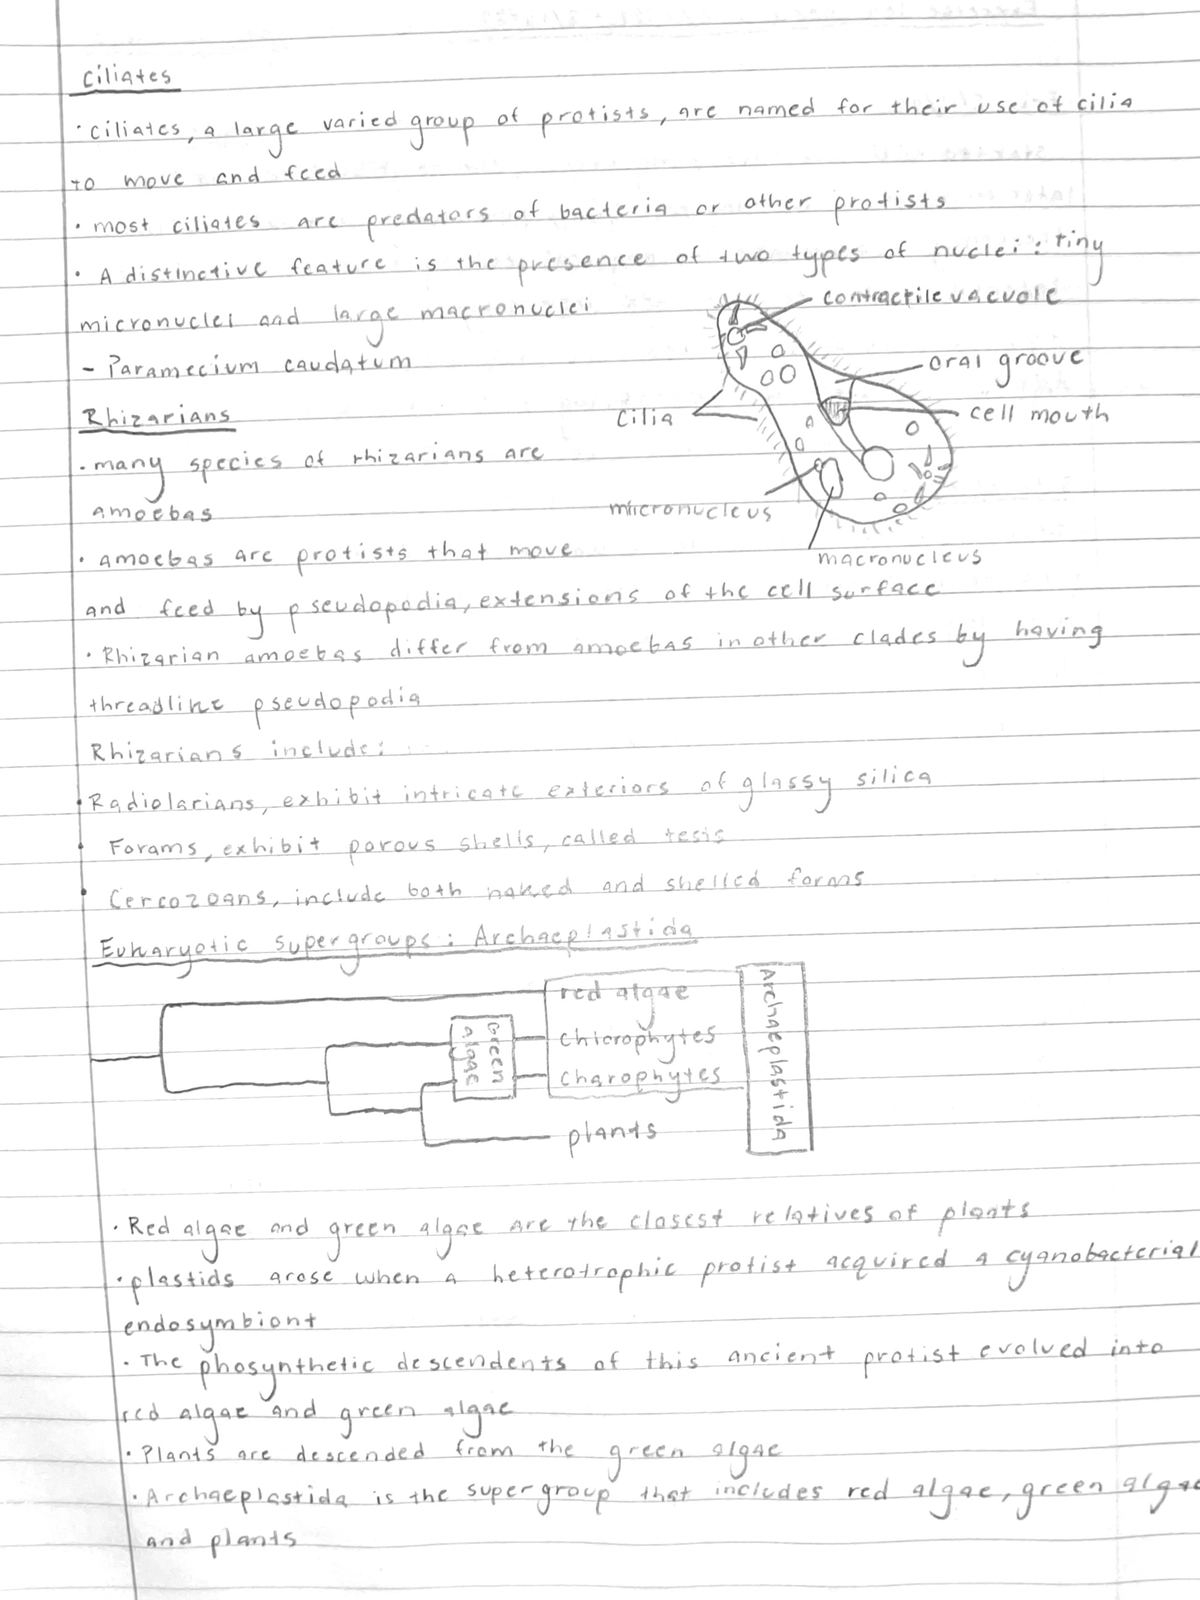 Ciliates
· ciliates, a large varied group of protists, are named for their use of cilia
to move and feed
· most ciliates are predators of bacteria or other protists
· A distinctive feature is the presence of two types of nuclei: tiny
micronuclei and large macronuclei
contractile vacuole
- Paramecium caudatum
oral groove
Rhizarians
cilia
cell mouth
· many species of rhizarians are
amoebas
micronucleus
· amoebas are protists that move
macronucleus
and feed by pseudopodia, extensions of the cell surface
· Rhizarian amoebas differ from amoebas in other clades by having
threadlike pseudopodia
Rhizarians include:
· Radiolarians, exhibit intricate exteriors of glassy silica
· Forams, exhibit porous shells, called tesis
· Cercozoans, include both naked and shelled forms
Eukaryotic supergroups: Archaeplastida
red algae
Green algae
chlorophytes
charophytes
plants
Archaeplastida
· Red algae and green algae are the closest relatives of plants
· plastids arose when a heterotrophic protist acquired a cyanobacterial
endosymbiont
· The phosynthetic descendents of this ancient protist evolved into
red algae and green algae
· Plants are descended from the green algae
· Archaeplastida is the supergroup that includes red algae, green algae
and plants